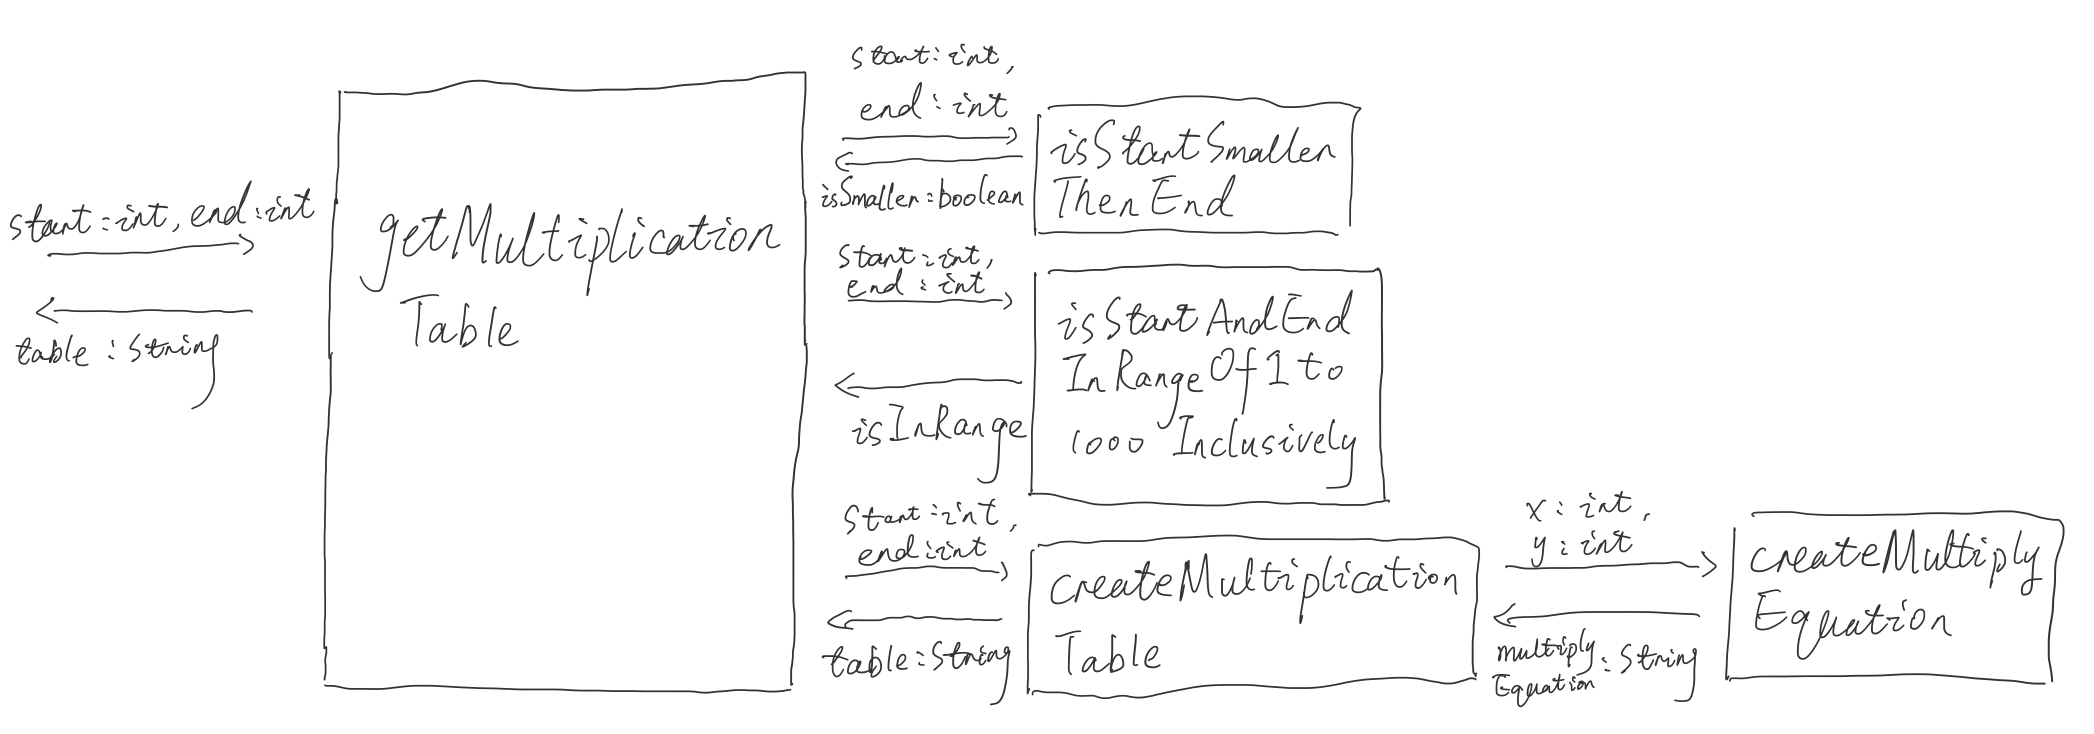 start:int, end:int
table:String
getMultiplication
Table
start:int,
end:int
isSmaller:boolean
isStartSmaller
ThenEnd
start:int,
end:int
isInRange
isStartAndEnd
InRangeOf1to
1000 Inclusively
start:int,
end:int
table:String
createMultiplication
Table
x:int,
y:int
multiply
Equation:String
createMultiply
Equation